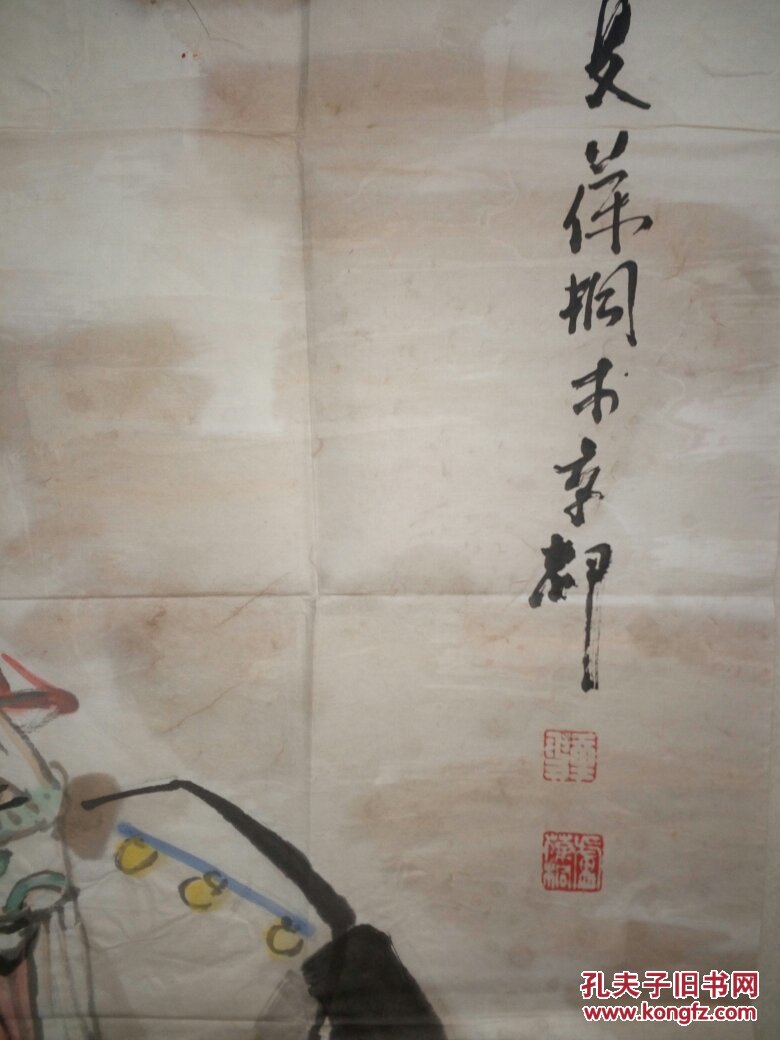 夏葆桐京都
孔夫子旧书网
www.kongfz.com